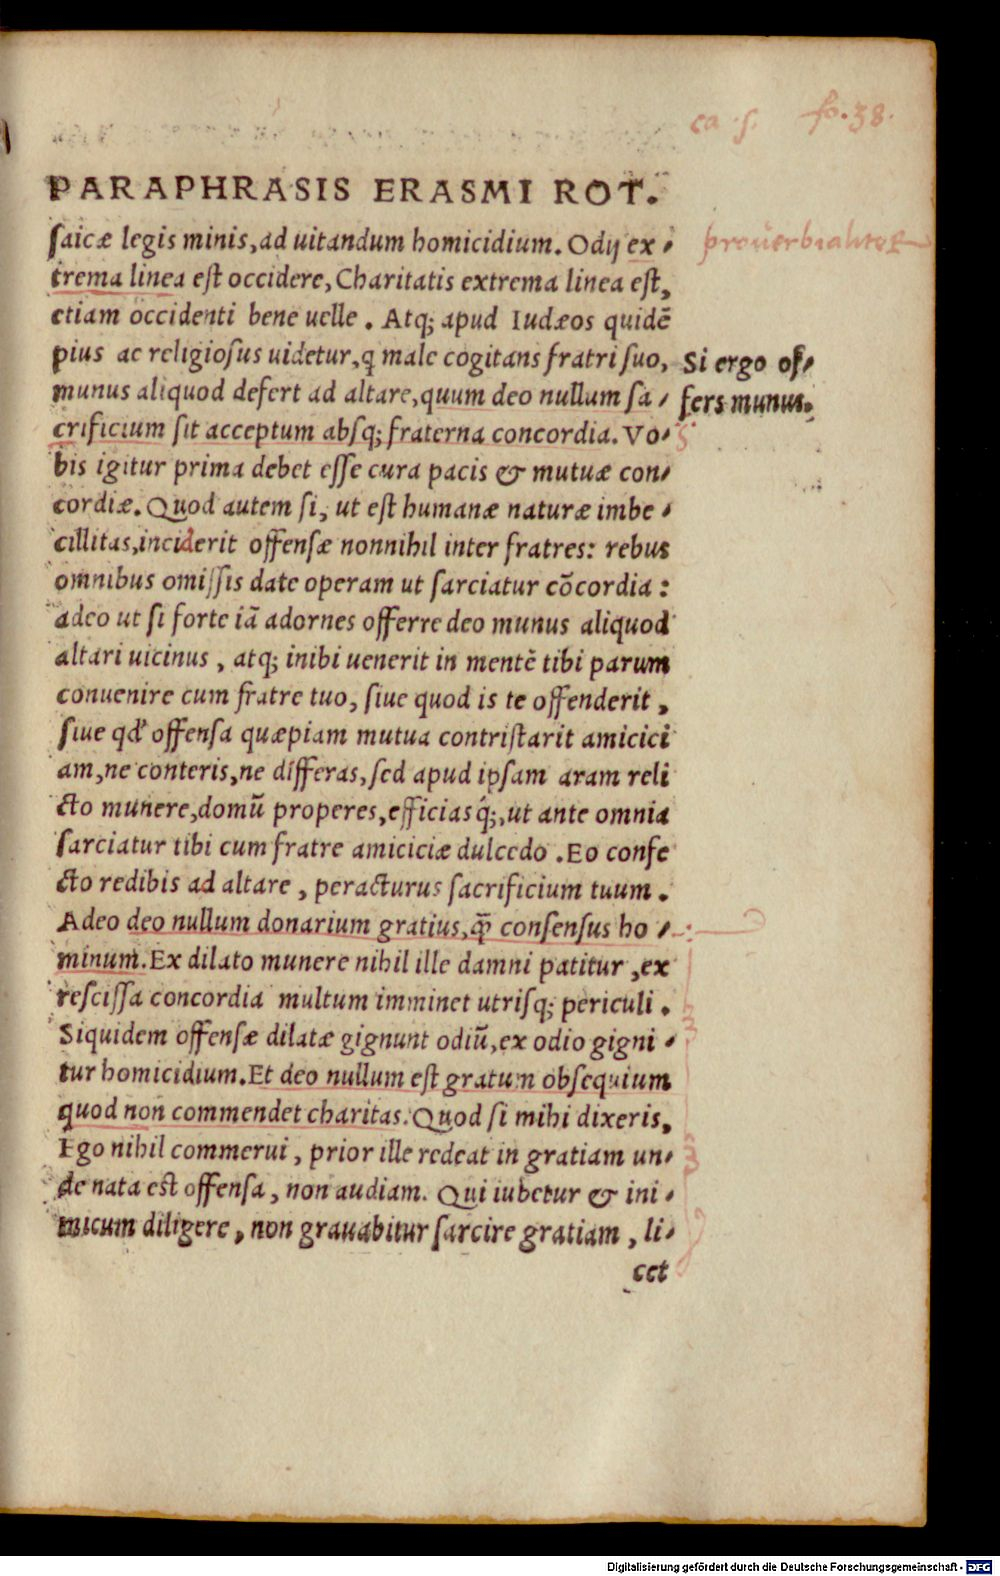 ca. 5. fo. 38.
PARAPHRASIS ERASMI ROT.
saicæ legis minis, ad uitandum homicidium. Odij ex-
trema linea est occidere, Charitatis extrema linea est,
etiam occidenti bene uelle. Atq; apud Iudæos quidē
pius ac religiosus uidetur, q male cogitans fratri suo,
munus aliquod defert ad altare, quum deo nullum sa-
crificium sit acceptum absq; fraterna concordia. Vo-
bis igitur prima debet esse cura pacis & mutuæ con-
cordiæ. Quod autem si, ut est humanæ naturæ imbe-
cillitas, inciderit offensæ nonnihil inter fratres: rebus
omnibus omissis date operam ut sarciatur cōcordia:
adeo ut si forte iā adornes offerre deo munus aliquod
altari uicinus, atq; inibi uenerit in mentē tibi parum
conuenire cum fratre tuo, siue quod is te offenderit,
siue qd' offensa quæpiam mutua contristarit amicici
am, ne conteris, ne differas, sed apud ipsam aram reli
cto munere, domū properes, efficias q́;, ut ante omnia
sarciatur tibi cum fratre amiciciæ dulcedo. Eo confe
cto redibis ad altare, peracturus sacrificium tuum.
Adeo deo nullum donarium gratius, q̄ consensus ho-
minum. Ex dilato munere nihil ille damni patitur, ex
rescissa concordia multum imminet utrisq; periculi.
Siquidem offensæ dilatæ gignunt odiū, ex odio gigni-
tur homicidium. Et deo nullum est gratum obsequium
quod non commendet charitas. Quod si mihi dixeris,
Ego nihil commerui, prior ille redeat in gratiam un-
de nata est offensa, non audiam. Qui iubetur & ini-
micum diligere, non grauabitur sarcire gratiam, li-
cet
prouerbialiter
Si ergo of-
fers munus.
Digitalisierung gefördert durch die Deutsche Forschungsgemeinschaft - DFG